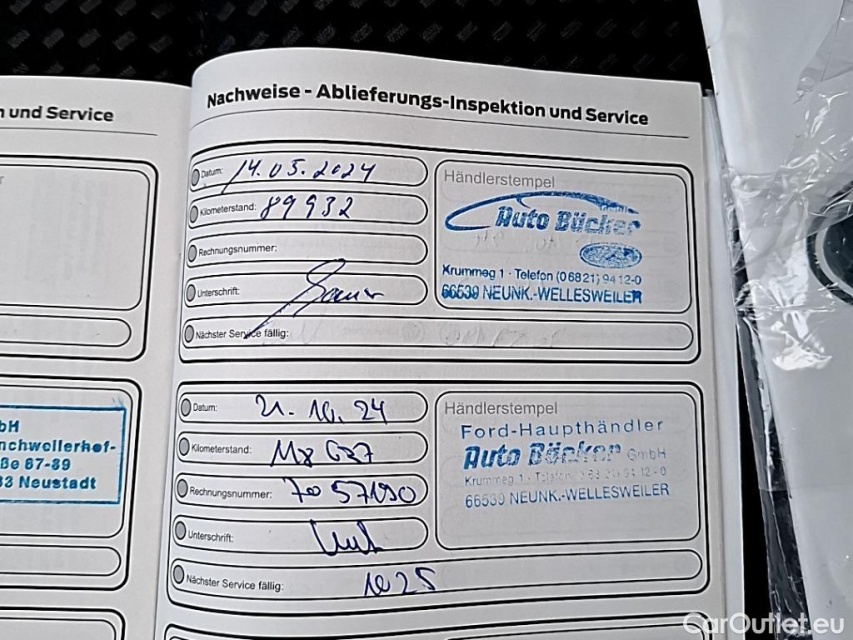 n und Service
bH
nchweilerhof-
ße 67-39
33 Neustadt
Nachweise - Ablieferungs-Inspektion und Service
Datum: 14.05.2024
Kilometerstand: 89932
Rechnungsnummer:
Unterschrift:
Nächster Service fällig:
Händlerstempel
Auto Bücker
Krummeg 1 · Telefon (06821) 94 12-0
66539 NEUNK.-WELLESWEILER
Datum: 21.10.24
Kilometerstand:
Rechnungsnummer: 70 57190
Unterschrift:
Nächster Service fällig: 10 25
Händlerstempel
Ford-Haupthändler
Auto Bücker GmbH
Krummeg 1 · Telefon 94 12-0
66539 NEUNK.-WELLESWEILER
CarOutlet.eu